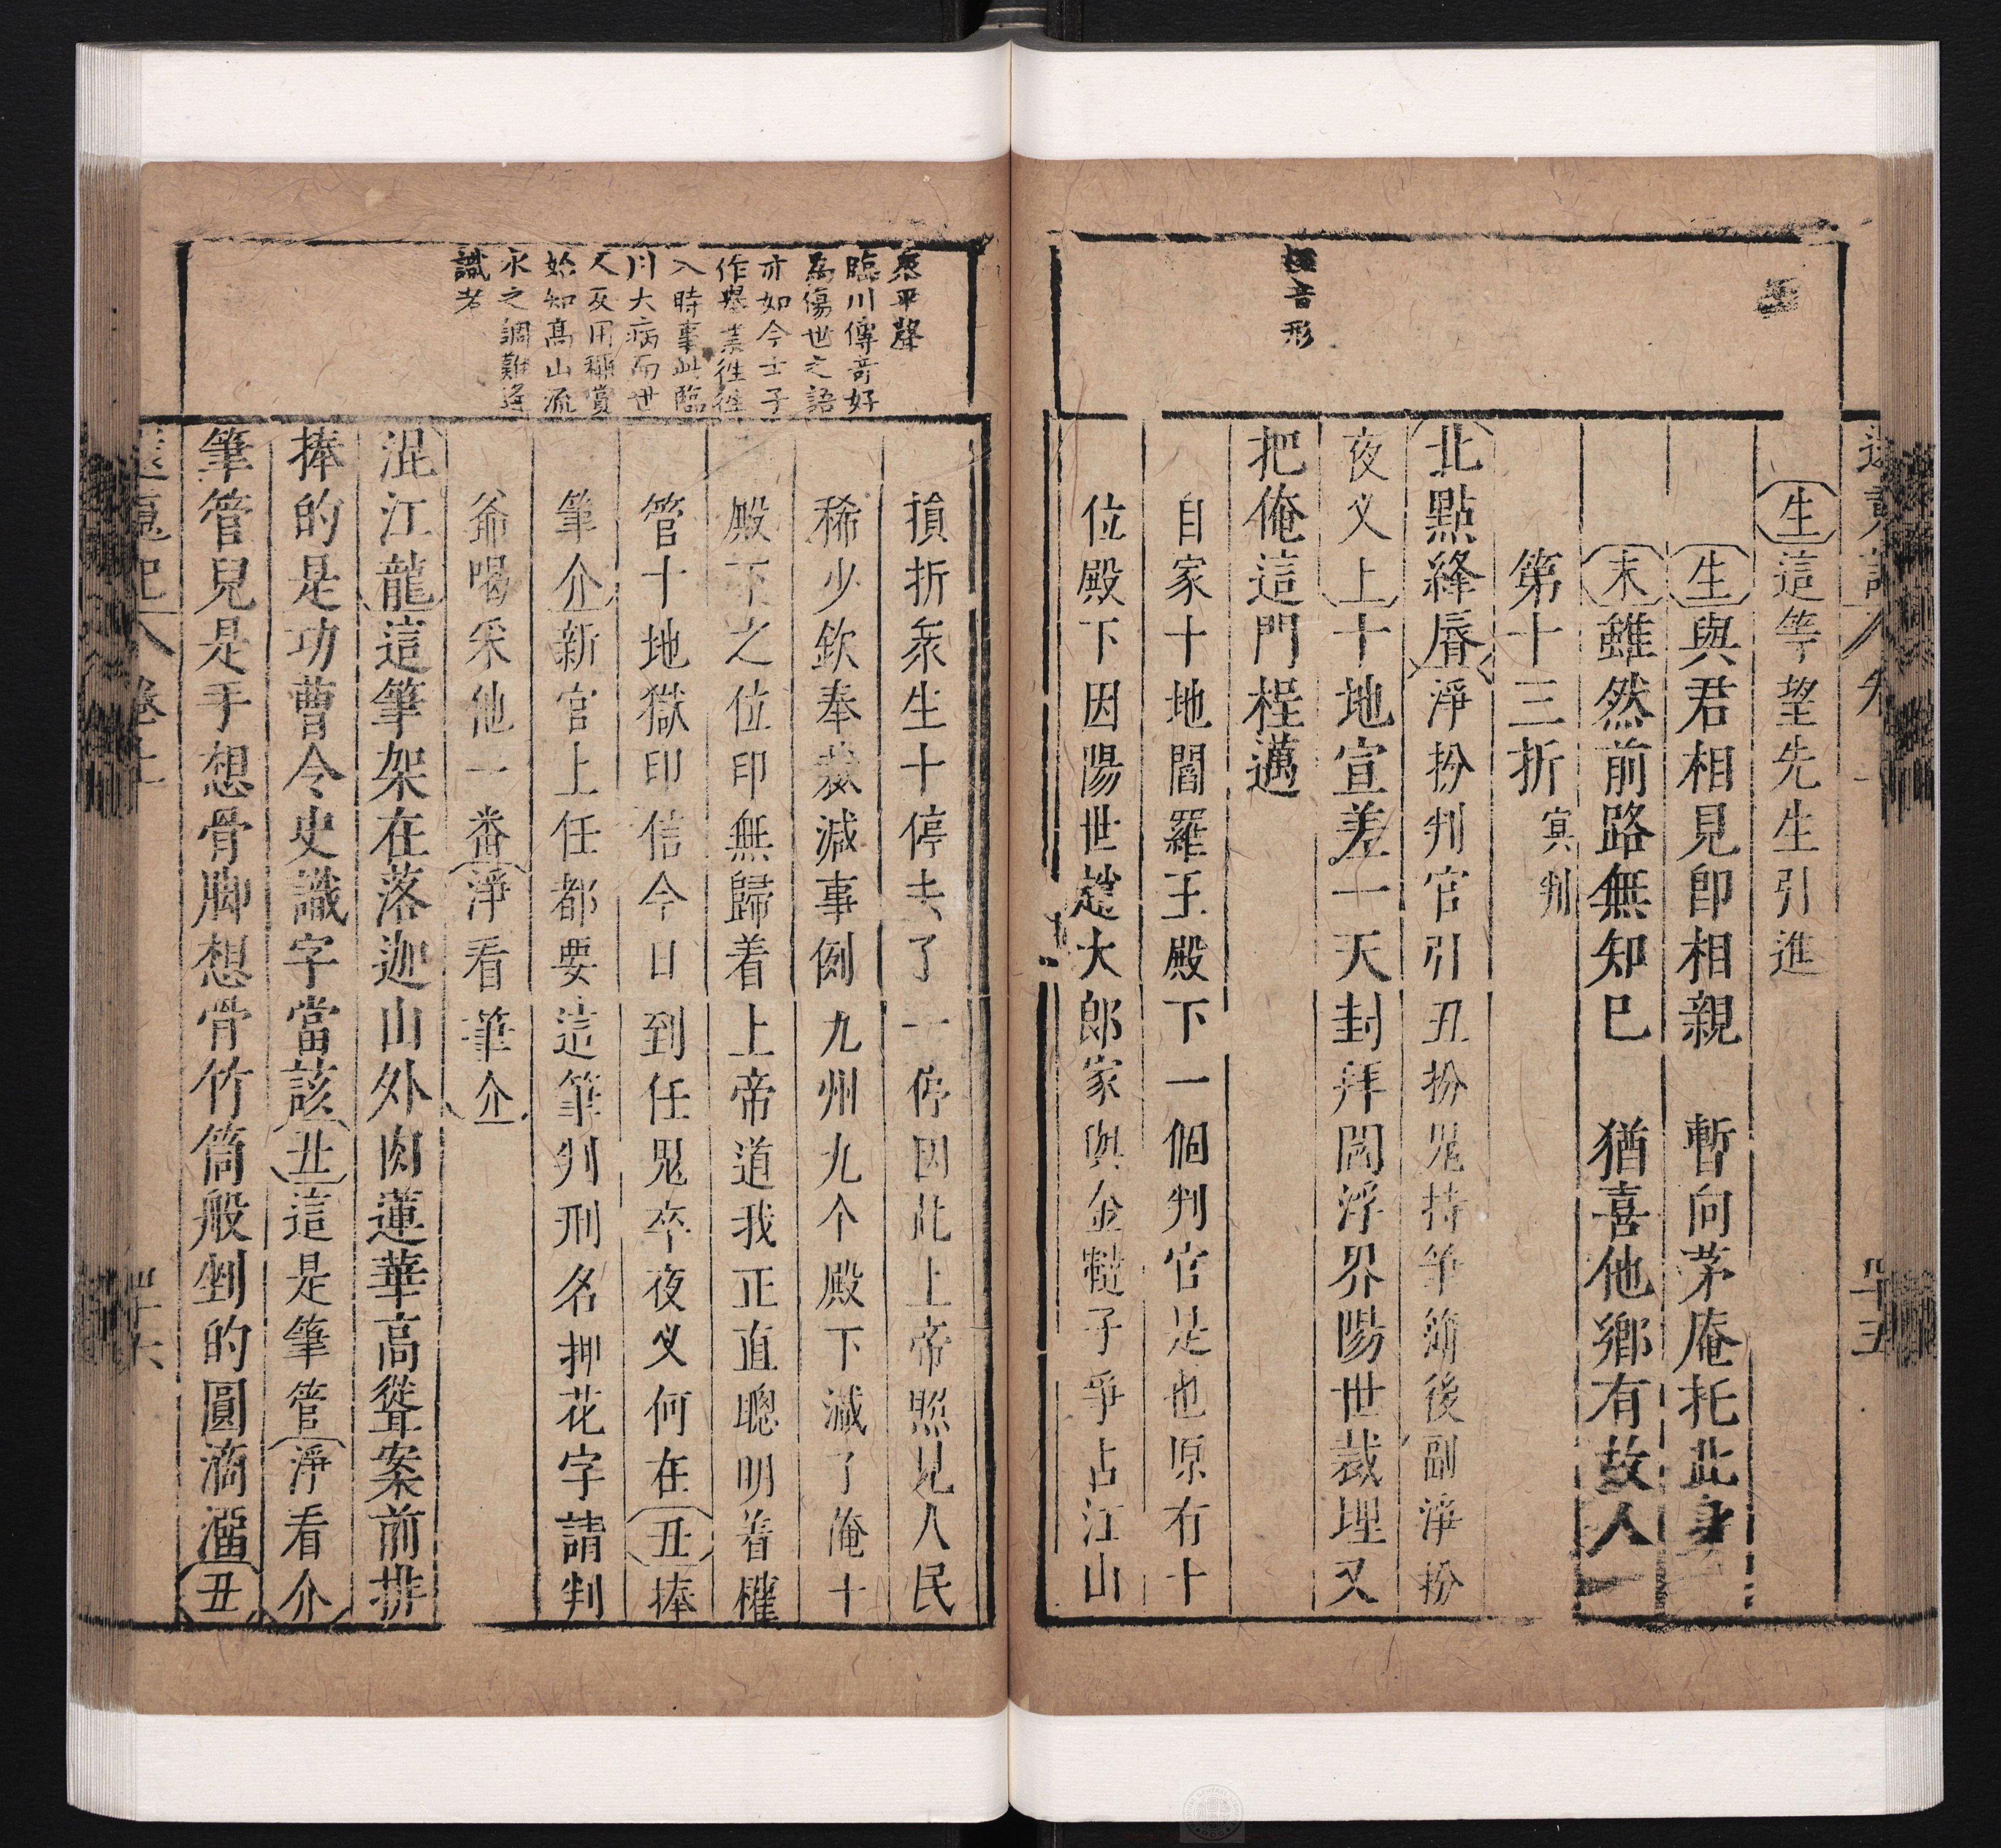 生這等望先生引進
生與君相見卽相親　暫向茅庵托此身
末雖然前路無知巳　猶喜他鄉有故人
第十三折　冥判
北點絳脣淨扮判官引丑扮鬼持筆簿後副淨扮
夜叉上十地宣差一天封拜閻浮界陽世裁埋又
把俺這門桯邁
自家十地閻羅王殿下一個判官是也原有十
位殿下因陽世趙大郎家與金韃子爭占江山
音形
四十五
損折衆生十停去了一停因此上帝照見人民
稀少欽奉裁減事例九州九个殿下減了俺十
殿下之位印無歸着上帝道我正直聰明着權
管十地獄印信今日到任鬼卒夜叉何在丑捧
筆介新官上任都要這筆判刑名押花字請判
爺喝采他一番淨看筆介
混江龍這筆架在落迦山外肉蓮華高聳案前排
捧的是功曹令史識字當該丑這是筆管淨看介
筆管兒是手想骨脚想骨竹筒般剉的圓滴溜丑
衆平聲
臨川傳奇好
爲傷世之語
亦如今士子
作舉業往往
入時事此臨
川大病而世
人反用稱賞
始知高山流
水之調難逢
識者
還魂記　卷上
四十六